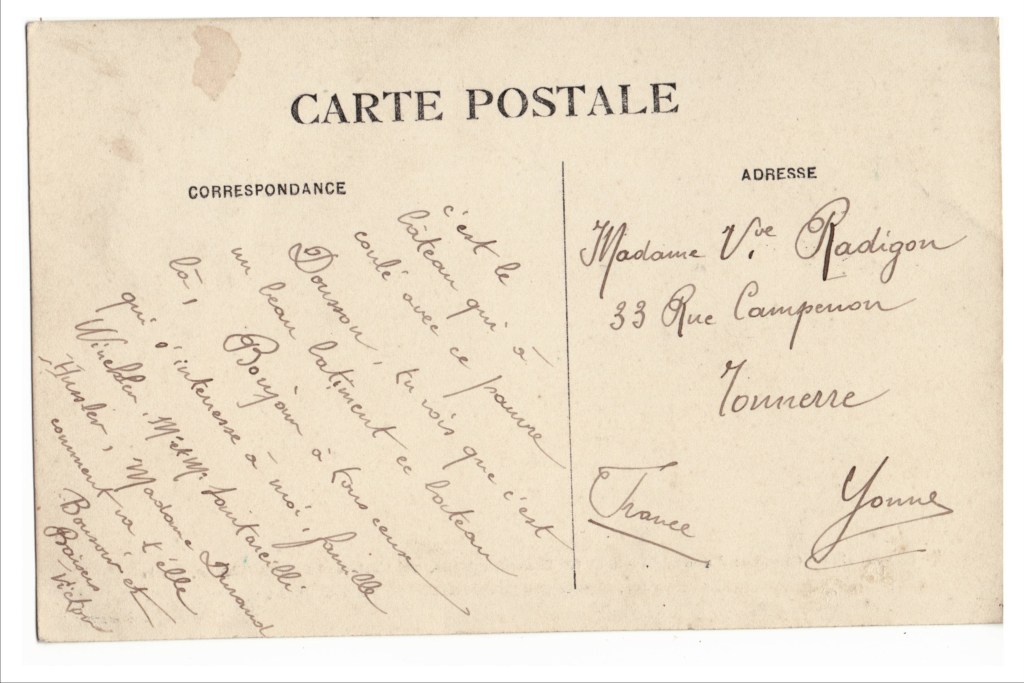 CARTE POSTALE
CORRESPONDANCE
c'est le
bâteau qui à
coulé avec ce pauvre
Dousson, tu vois que c'est
un beau batiment ce bateau
là, Bonjour à tous ceux
qui s'interresse à moi, famille
Winckler, Mr et Me
Hussler, Madame Durand
comment va t'elle
Bonsoir et
Baisers
Victor
ADRESSE
Madame Vve Radigon
33 Rue Campenon
Tonnerre
France Yonne